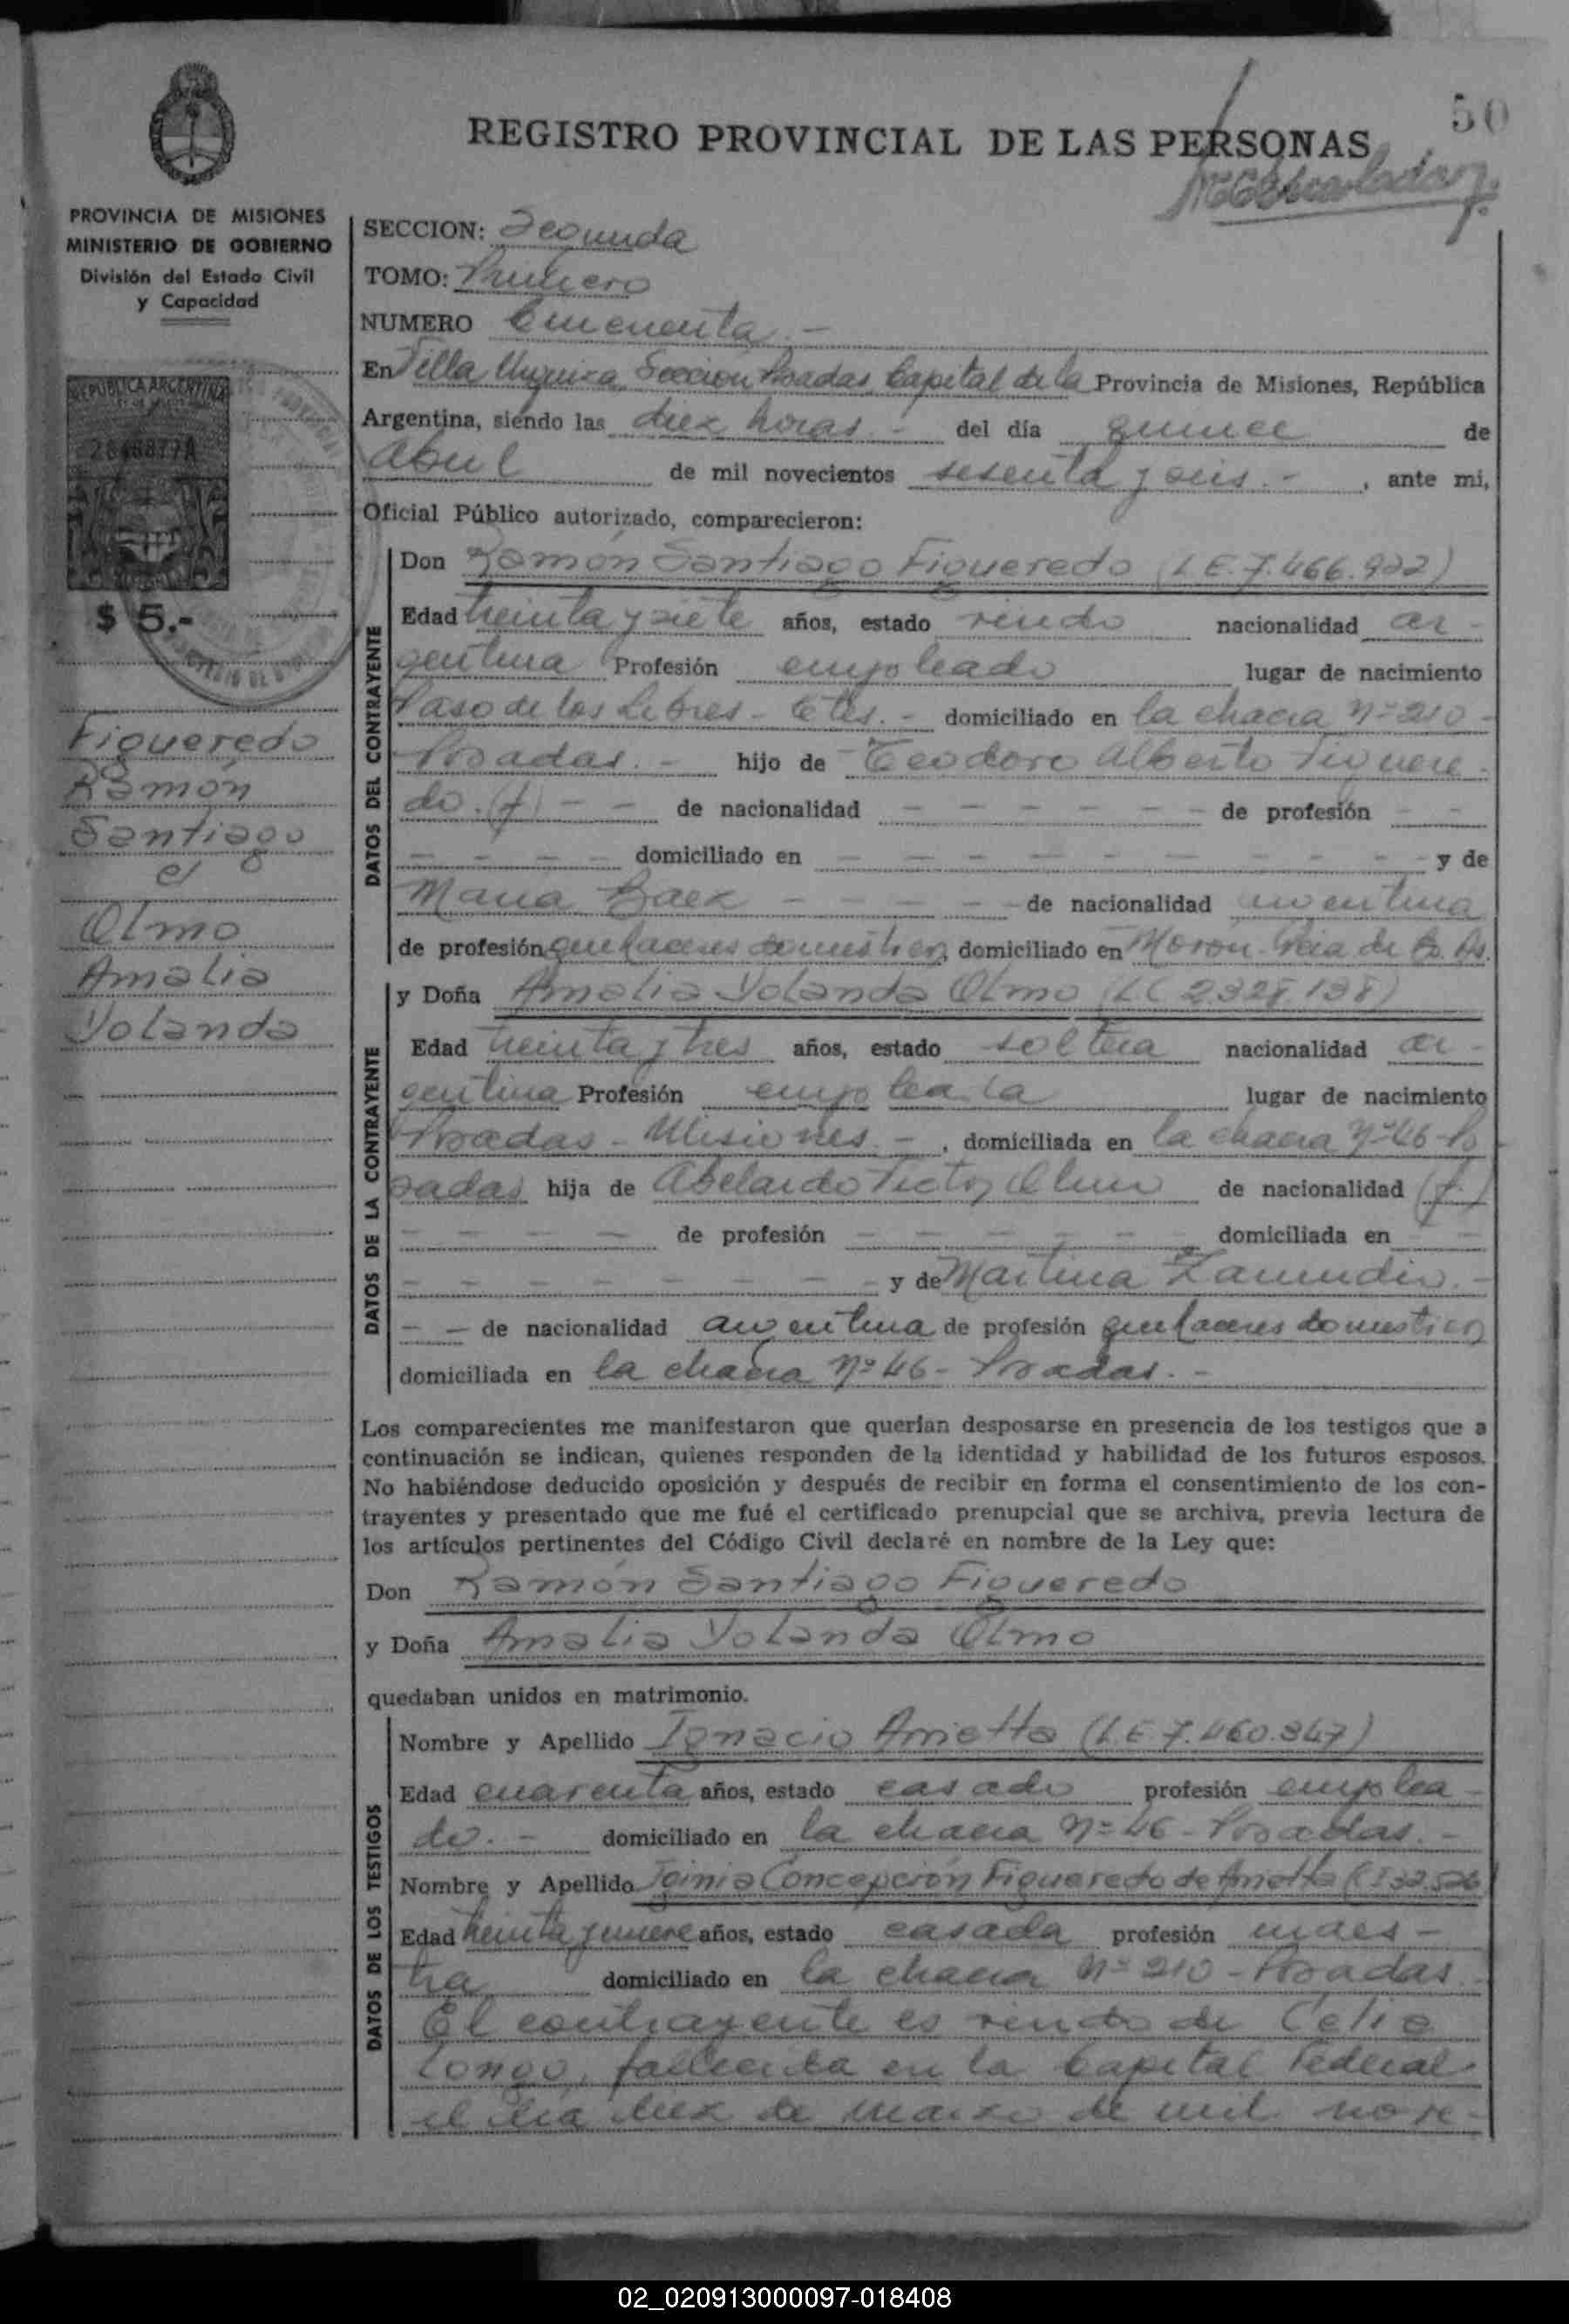 50
REGISTRO PROVINCIAL DE LAS PERSONAS
PROVINCIA DE MISIONES
MINISTERIO DE GOBIERNO
División del Estado Civil
y Capacidad
REPUBLICA ARGENTINA
$ 5.-
Figueredo
Ramón
Santiago
c/
Olmo
Amalia
Yolanda
SECCION: Segunda
TOMO: Primero
NUMERO Cincuenta.-
En Villa Urquiza Sección Posadas Capital de la Provincia de Misiones, República
Argentina, siendo las diez horas.- del día quince de
abril de mil novecientos sesenta y seis.-, ante mi,
Oficial Público autorizado, comparecieron:
DATOS DEL CONTRAYENTE
Don Ramón Santiago Figueredo (L E. 7.466.922)
Edad treinta y siete años, estado viudo nacionalidad ar-
gentina Profesión empleado lugar de nacimiento
Paso de los Libres - Ctes.- domiciliado en la chacra Nº 210-
Posadas.- hijo de Teodoro Alberto Figuere-
do. (f) - - de nacionalidad - - - - - - - de profesión - -
- - - - domiciliado en - - - - - - - - - - y de
Maria Baez - - - - - - de nacionalidad argentina
de profesión quehaceres domesticos, domiciliado en Morón - Pcia. de B. As.
DATOS DE LA CONTRAYENTE
y Doña Amalia Yolanda Olmo (LC 2.328.138)
Edad treinta y tres años, estado soltera nacionalidad ar-
gentina Profesión empleada lugar de nacimiento
Posadas - Misiones.-, domiciliada en la chacra Nº 46 - Po
sadas hija de Abelardo Victor Olmo de nacionalidad (f.)
- - - - de profesión - - - - - domiciliada en - -
- - - - - - - - y de Martina Zamudio.-
- - de nacionalidad argentina de profesión quehaceres domesticos
domiciliada en la chacra Nº 46 - Posadas.-
Los comparecientes me manifestaron que querían desposarse en presencia de los testigos que a
continuación se indican, quienes responden de la identidad y habilidad de los futuros esposos.
No habiéndose deducido oposición y después de recibir en forma el consentimiento de los con-
trayentes y presentado que me fué el certificado prenupcial que se archiva, previa lectura de
los artículos pertinentes del Código Civil declaré en nombre de la Ley que:
Don Ramón Santiago Figueredo
y Doña Amalia Yolanda Olmo
quedaban unidos en matrimonio.
DATOS DE LOS TESTIGOS
Nombre y Apellido Ignacio Arrietta (L.E 7.460.347)
Edad cuarenta años, estado casado profesión emplea-
do.- domiciliado en la chacra Nº 46 - Posadas.-
Nombre y Apellido Concepción Figueredo de Arrietta
Edad treinta y nueve años, estado casada profesión maes-
tra domiciliado en la chacra Nº 210 - Posadas.-
El contrayente es viudo de Celia
Longo, fallecida en la Capital Federal
el dia diez de marzo de mil nove-
02_020913000097-018408